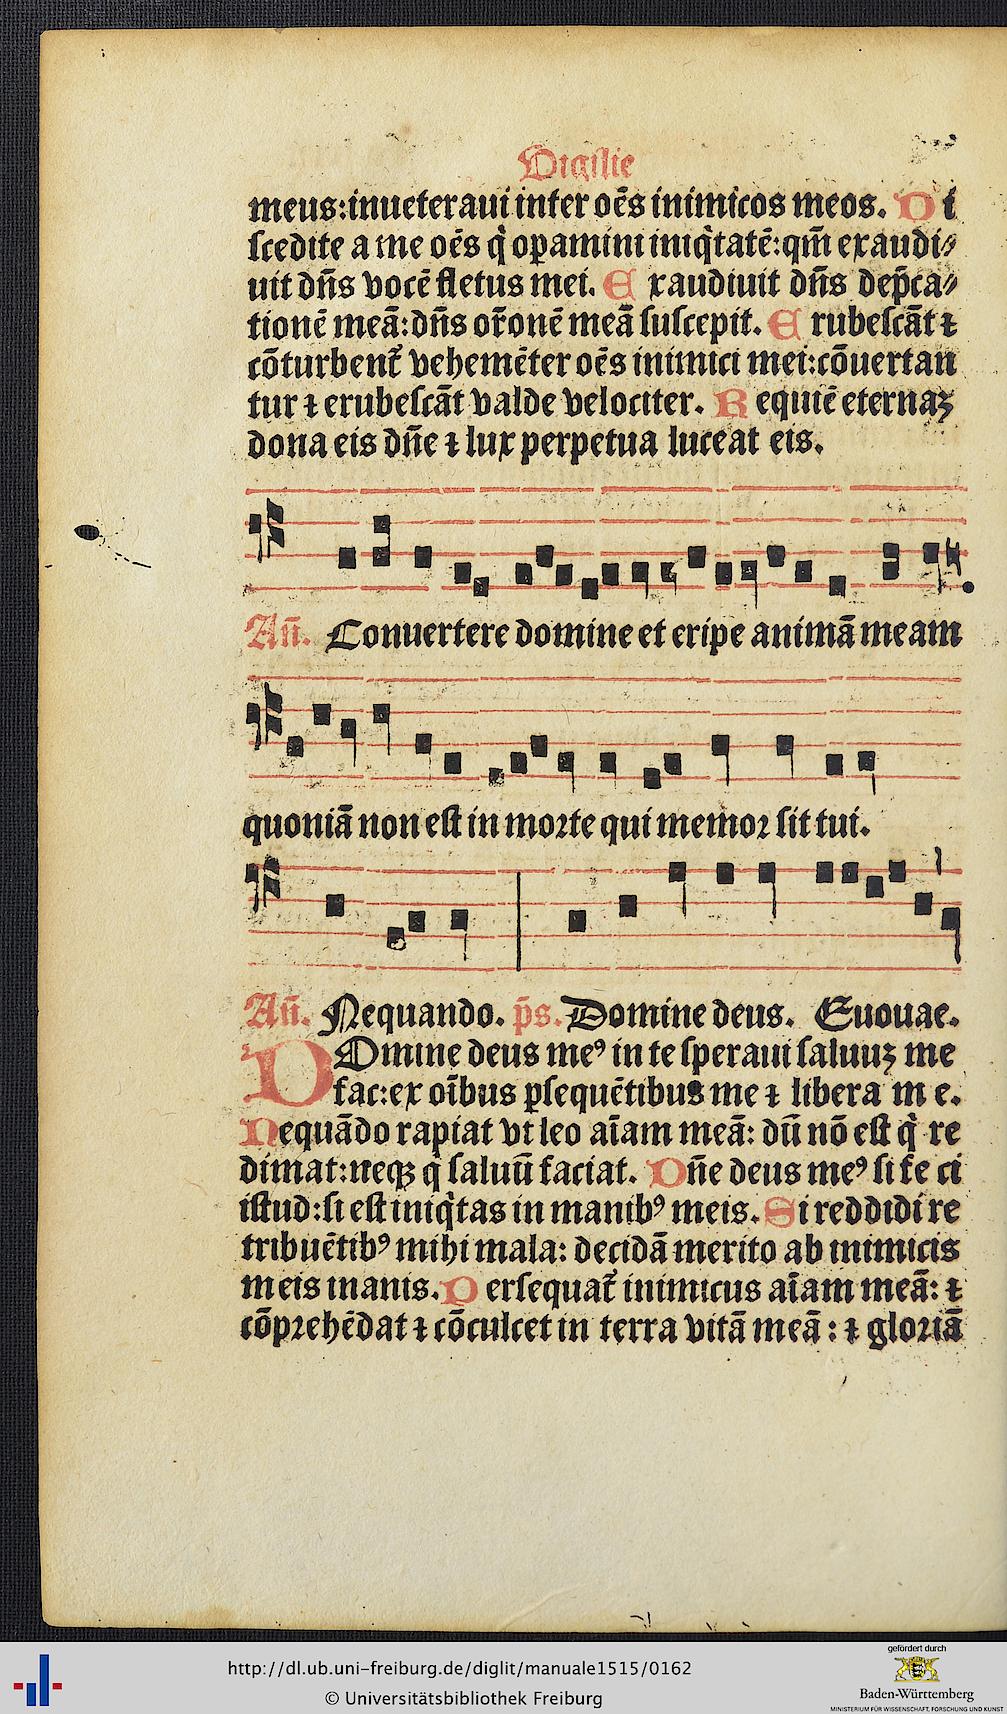 Vigilie
meus:inueteraui inter oēs inimicos meos. Di
scedite a me oēs q̇ opamini iniq̇tatē:qm̄ exaudi⸗
uit dn̄s vocē fletus mei. Exaudiuit dn̄s dep̄ca⸗
tionē meā:dn̄s or̄onē meā suscepit. Erubescāt ⁊
cōturbent᷑ vehemēter oēs inimici mei:cōuertan
tur ⁊ erubescāt valde velociter. Requiē eternaꝫ
dona eis dn̄e ⁊ lux perpetua luceat eis.
An̄. Conuertere domine et eripe animā meam
quoniā non est in morte qui memor sit tui.
An̄. Nequando. p̄s. Domine deus. Euouae.
DOmine deus meꝰ in te speraui saluuꝫ me
fac:ex oī̄bus ꝑsequētibus me ⁊ libera me.
Nequādo rapiat vt leo aīam meā: dū nō est q̇ re
dimat:neqꝫ q̇ saluū faciat. Dn̄e deus meꝰ si feci
istud:si est iniq̇tas in manibꝰ meis. Si reddidi re
tribuētibꝰ mihi mala: decidā merito ab inimicis
meis inanis. Persequat᷑ inimicus aīam meā: ⁊
cōprehēdat ⁊ cōculcet in terra vitā meā: ⁊ gloriā
http://dl.ub.uni-freiburg.de/diglit/manuale1515/0162
© Universitätsbibliothek Freiburg
gefördert durch
Baden-Württemberg
MINISTERIUM FÜR WISSENSCHAFT, FORSCHUNG UND KUNST